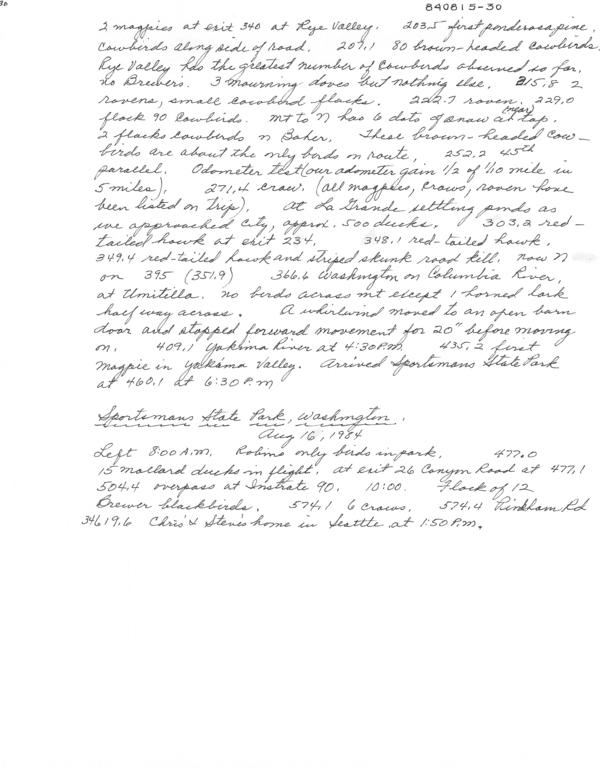 30
840815-30
2 magpies at exit 340 at Rye Valley. 203.5 first ponderosa pine.
Cowbirds along side of road. 207.1 80 brown-headed Cowbirds.
Rye Valley has the greatest number of Cowbirds observed so far.
no Brewers. 3 mourning doves but nothing else. 215.8 2
ravens, small cowbird flocks. 222.7 raven. 229.0
flock 90 Cowbirds. mt to N has 6 dots of snow near top.
2 flocks cowbirds n Baker. These brown-headed Cow-
birds are about the only birds on route, 252.2 45th
parallel. Odometer test (our odometer gain 1/2 of 1/10 mile in
5 miles). 271.4 crow. (all magpies, crows, raven have
been listed on trip). At La Grande settling ponds as
we approached city, approx. 500 ducks. 303.2 red-
tailed hawk at exit 234. 348.1 red-tailed hawk.
349.4 red-tailed hawk and striped skunk road kill. now N
on 395 (351.9) 366.6 Washington on Columbia River,
at Umitilla. no birds across mt except 1 horned lark
half way across. A whirlwind moved to an open barn
door and stopped forward movement for 20" before moving
on. 409.1 Yakima River at 4:30 P.M. 435.2 first
magpie in Yakima Valley. Arrived Sportsmans State Park
at 460.1 at 6:30 P.M
Sportsmans State Park, Washington.
Aug 16, 1984
Left 8:00 A.M. Robins only birds in park. 477.0
15 mallard ducks in flight. at exit 26 Canyon Road at 477.1
504.4 overpass at Instrate 90. 10:00. Flock of 12
Brewer blackbirds. 574.1 6 crows. 574.4 Pinkham Rd
34619.6 Chris & Steve's home in Seattle at 1:50 P.M.